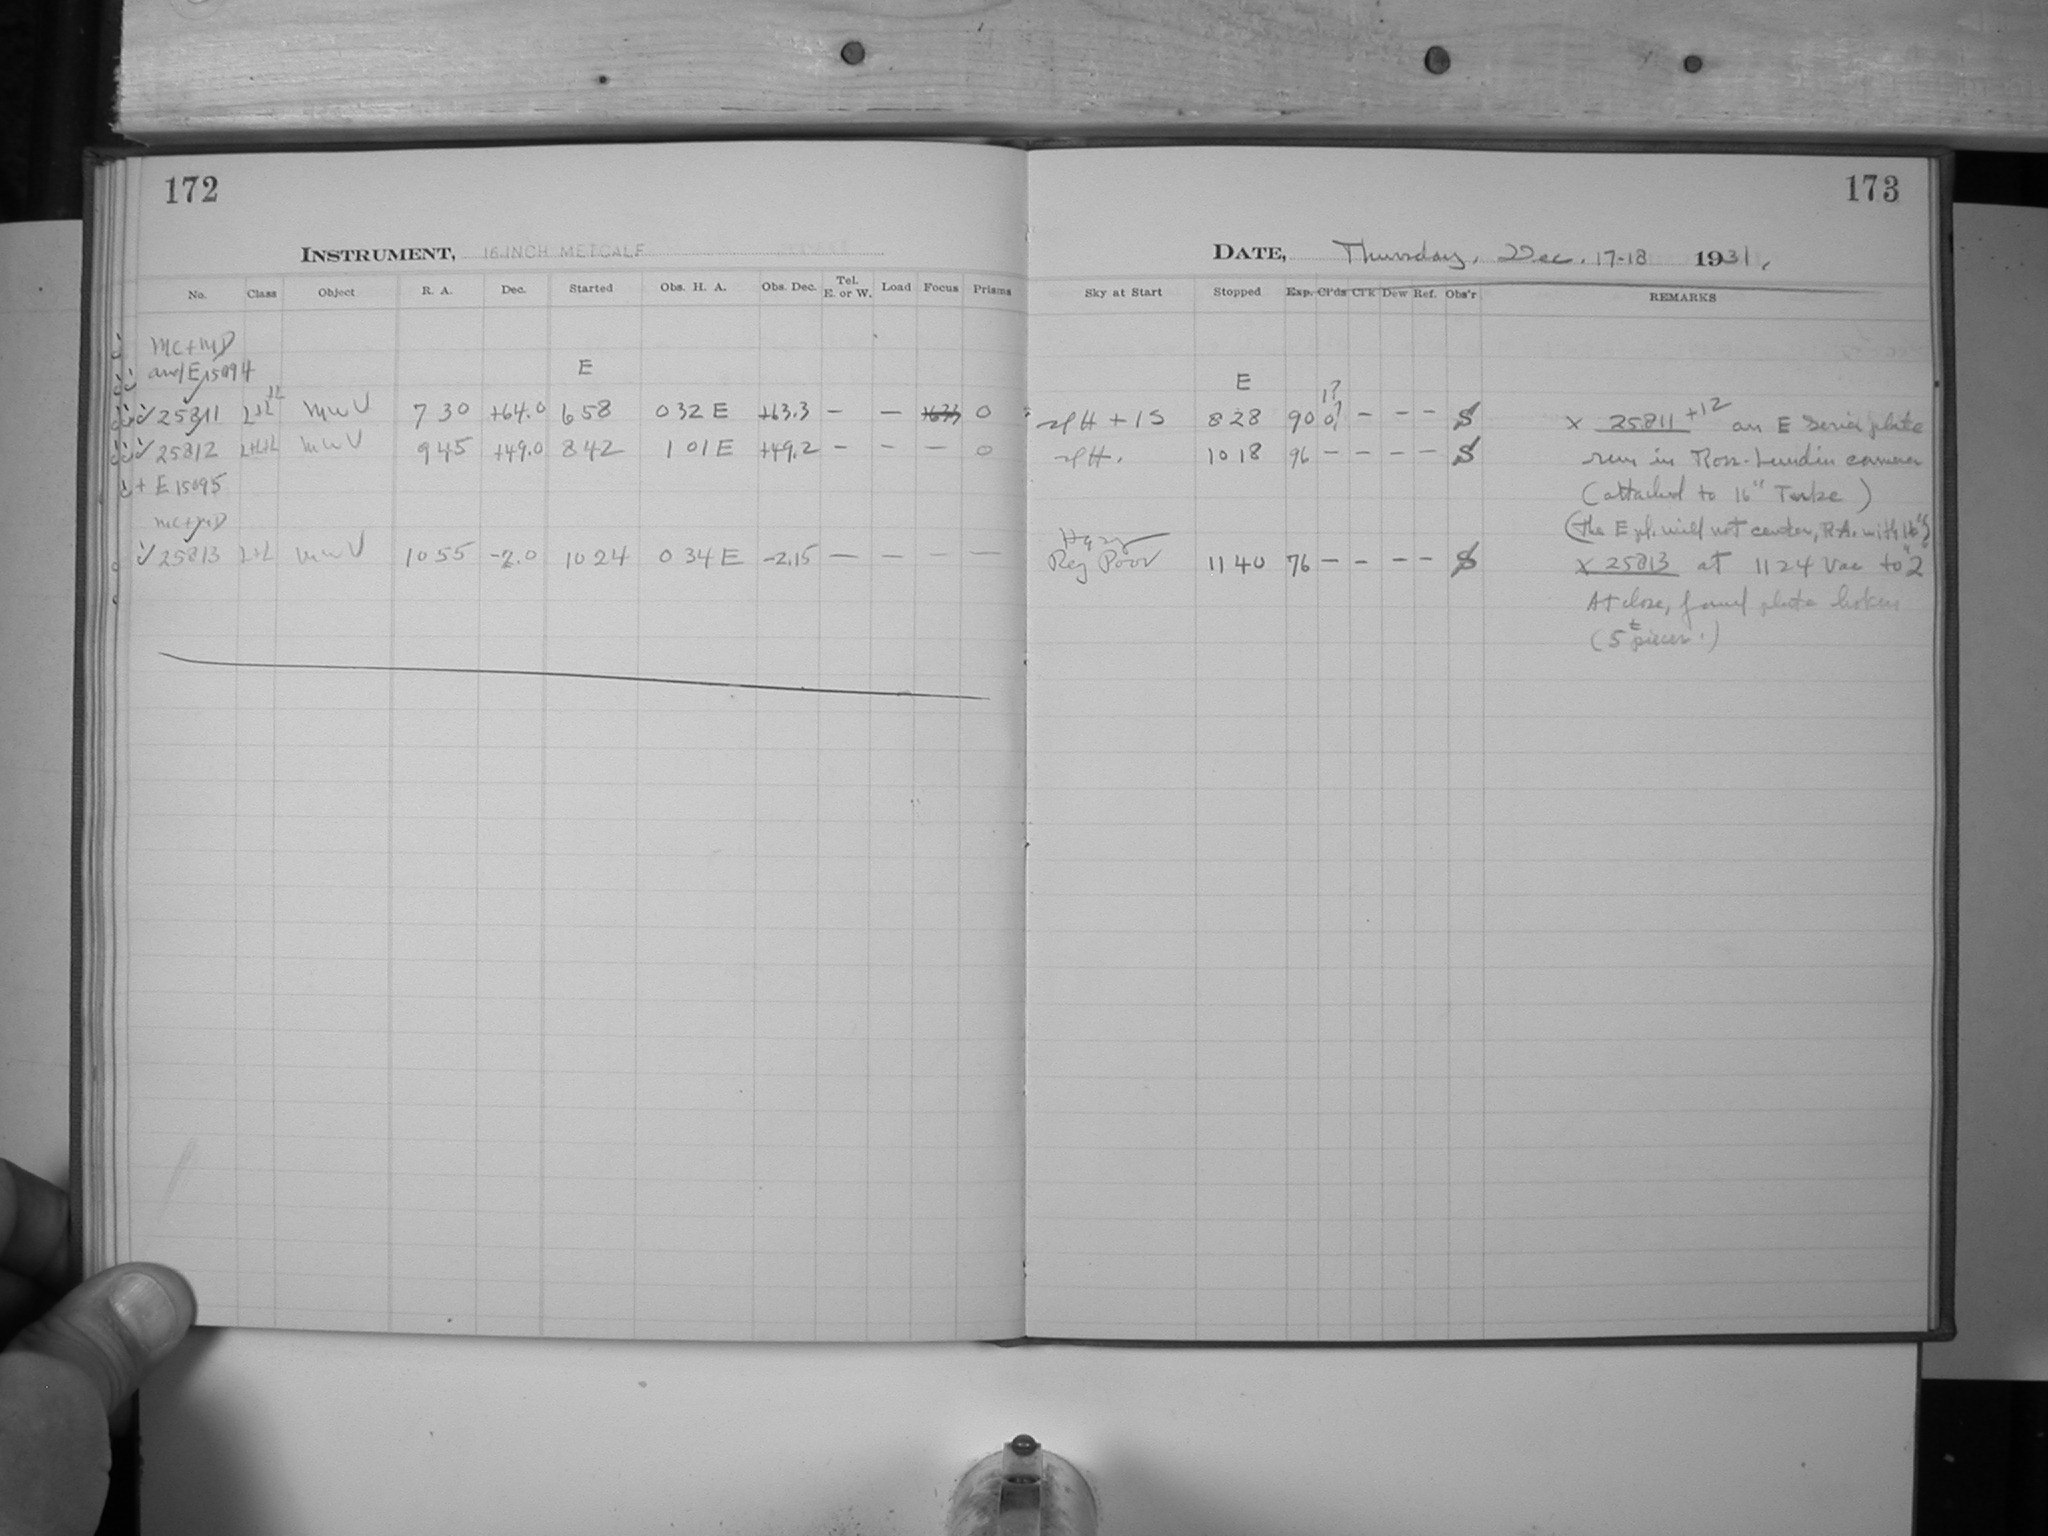 172
INSTRUMENT, 16 INCH METCALF
No. Class Object R. A. Dec. Started Obs. H. A. Obs. Dec. Tel. E. or W. Load Focus Prisms
MC+MD
and E15094 E
25811 L+L MWV 7 30 +64.0 6 58 0 32 E +63.3 — — O
25812 MWV 9 45 +49.0 8 42 1 01 E +49.2 — — — O
+ E15095
MC+MD
25813 L+L MWV 10 55 -2.0 10 24 0 34 E -2.15 — — — —
173
DATE, Thursday, Dec. 17-18 1931,
Sky at Start Stopped Exp. Cl'ds Cl'k Dew Ref. Obs'r REMARKS
E 1?
H + 1S 8 28 90 0? – – – S x 25811 +12 an E Series plate
H. 10 18 96 – – – – S run in Ross-Lundin camera
(attached to 16" Tube)
(The E pl. will not center, R.A. with 16")
Hazy
Reg Poor 11 40 76 – – – – S x 25813 at 11 24 Vac to 2"
At close, found plate broken
(5 pieces.)